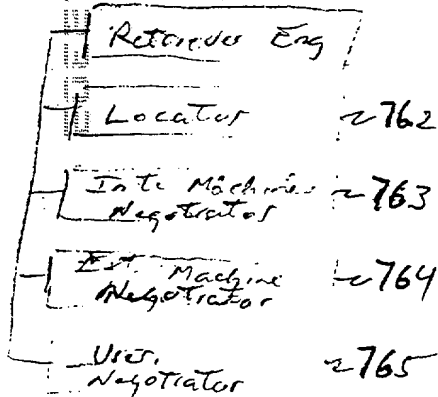 Retriever Eng
Locator ~762
Int. Machine
Negotiator ~763
Ext. Machine
Negotiator ~764
User
Negotiator ~765